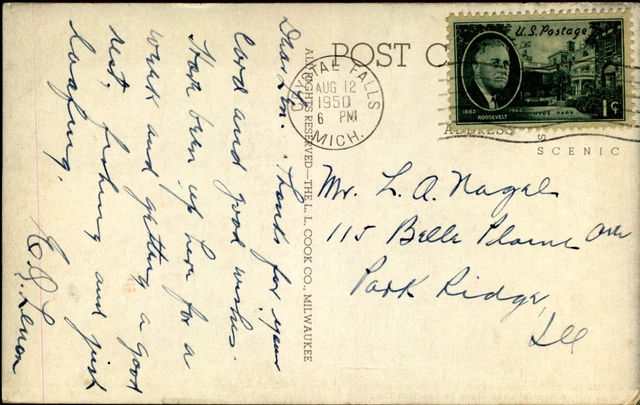 POST C
U.S. Postage
1882 1945
ROOSEVELT
HYDE PARK
1¢
CRYSTAL FALLS
AUG 12
1950
6 PM
MICH.
ADDRESS
SCENIC
ALL RIGHTS RESERVED—THE L. L. COOK CO., MILWAUKEE
Thanks for your
card and good wishes.
Have been up here for a
week and getting a good
rest, fishing and just
loafing.
Mr. L. A. Nagel
115 Belle Plaine Ave
Park Ridge,
Ill